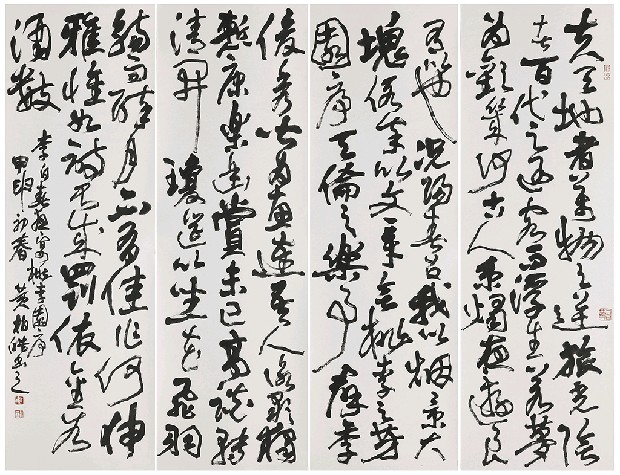 夫天地者萬物之逆旅光陰
者百代之過客而浮生若夢
為歡幾何古人秉燭夜遊良
有以也況陽春召我以烟景大
塊假我以文章會桃李之芳
園序天倫之樂事群季
俊秀皆為惠連吾人詠歌獨
慚康樂幽賞未已高談轉
清開瓊筵以坐花飛羽
觴而醉月不有佳作何伸
雅懷如詩不成罰依金谷
酒數
李白春夜宴桃李園序
甲申初春 黄柏皓書之